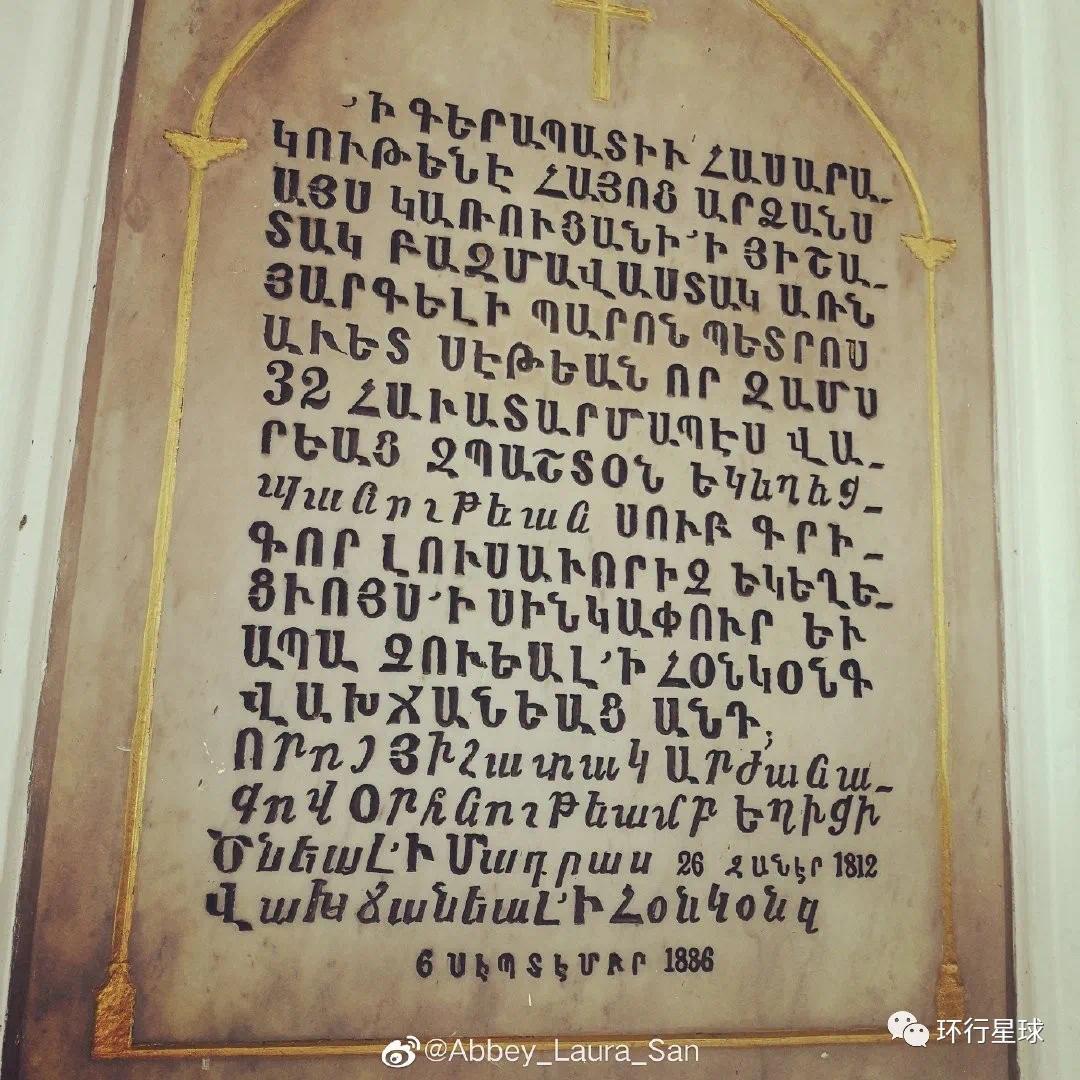 ՚Ի ԳԵՐԱՊԱՏԻՒ ՀԱՍԱՐԱ֊
ԿՈՒԹԵՆԷ ՀԱՅՈՑ ԱՐՁԱՆՍ
ԱՅՍ ԿԱՌՈՒՅԱՆԻ ՚Ի ՅԻՇԱ֊
ՏԱԿ ԲԱԶՄԱՎԱՍՏԱԿ ԱՌՆ
ՅԱՐԳԵԼԻ ՊԱՐՈՆ ՊԵՏՐՈՍ
ԱՒԵՏ ՍԷԹԵԱՆ ՈՐ ԶԱՄՍ
32 ՀԱՒԱՏԱՐՄԱՊԷՍ ՎԱ֊
ՐԵԱՑ ԶՊԱՇՏՕՆ ԵԿեղեց֊
պանութեան ՍՈՒԲ ԳՐԻ֊
ԳՈՐ ԼՈՒՍԱՒՈՐԻՉ ԵԿԵՂԵ֊
ՑԻՈՅՍ ՚Ի ՍԻՆԿԱՓՈՒՐ ԵՒ
ԱՊԱ ՉՈՒԵԱԼ ՚Ի ՀՕՆԿՕՆԳ
ՎԱԽՃԱՆԵԱՑ ԱՆԴ,
ՈՐոյ ՅԻշատակ ԱՐժանա֊
գով ՕՐհնութեամբ ԵՂԻցի
Ծնեալ ՚Ի Մադրաս 26 ՀԱՆՎԵՐ 1812
Վախճանեալ ՚Ի Հօնկօնգ
6 ՍԷՊՏԷՄԲՐ 1886
@Abbey_Laura_San
环行星球